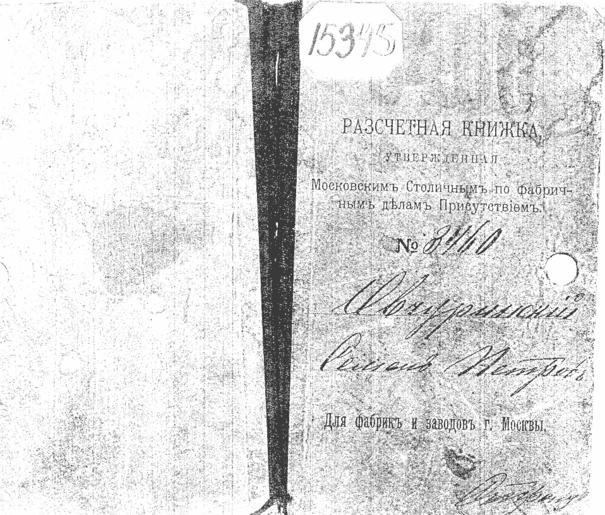 15345
РАЗСЧЕТНАЯ КНИЖКА,
УТВЕРЖДЕННАЯ
Московскимъ Столичнымъ по фабрич-
нымъ дѣламъ Присутствіемъ.
№ 3460
Семенъ Петровъ
Для фабрикъ и заводовъ г. Москвы.